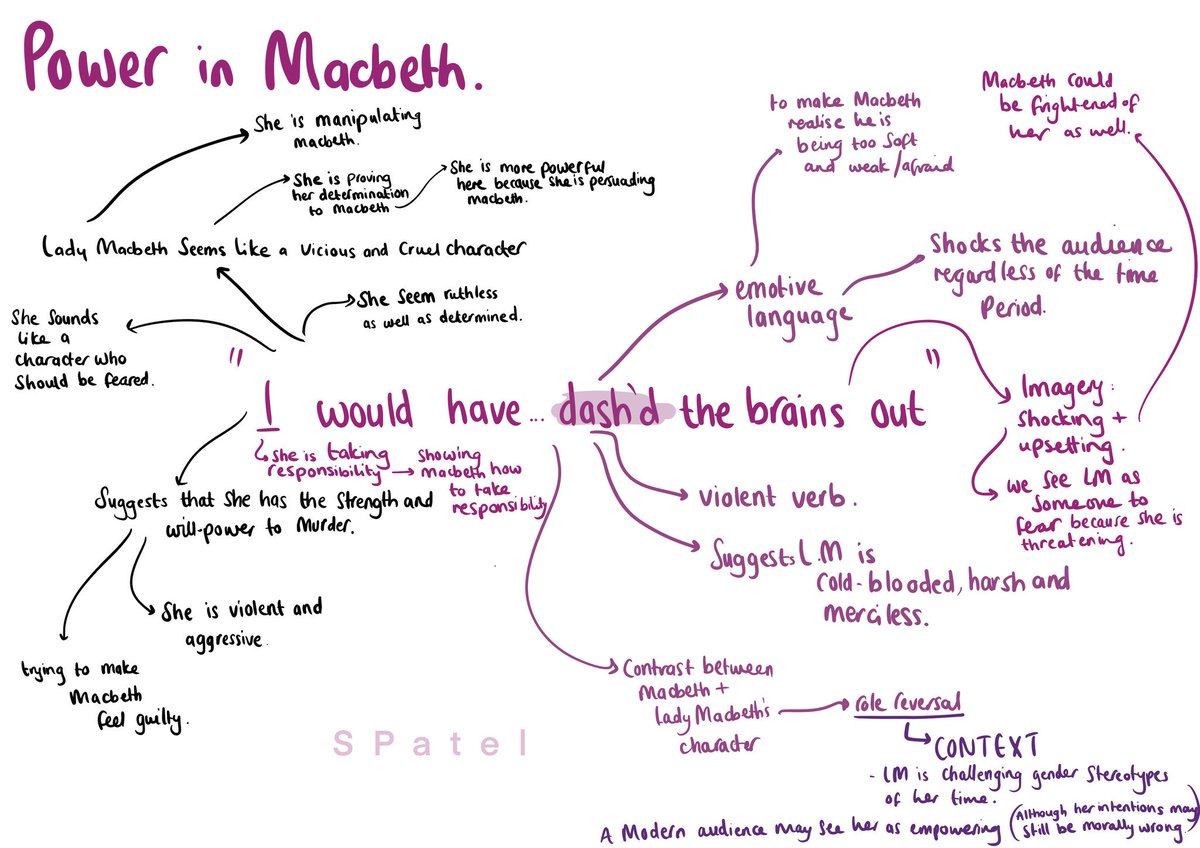 Power in Macbeth.
She is manipulating
macbeth.
She is proving
her determination
to Macbeth
She is more powerful
here because she is persuading
macbeth.
Lady Macbeth Seems Like a Vicious and Cruel character
She Seem ruthless
as well as determined.
She Sounds
like a
character who
Should be feared.
to make Macbeth
realise he is
being too soft
and weak/afraid
Macbeth could
be frightened of
her as well.
emotive
language
Shocks the audience
regardless of the time
Period.
"I would have... dash'd the brains out"
She is taking
responsibility
showing
macbeth how
to take
responsibility
Suggests that She has the Strength and
will-power to Murder.
She is violent and
aggressive.
trying to make
Macbeth
feel guilty.
Imagery:
Shocking +
upsetting.
we see LM as
Someone to
fear because she is
threatening.
violent verb.
Suggests L.M is
cold-blooded, harsh and
merciless.
Contrast between
Macbeth +
Lady Macbeth's
character
role reversal
CONTEXT
- LM is challenging gender Stereotypes
of her time.
A Modern audience may see her as empowering (Although her intentions may
Still be morally wrong.)
SPatel